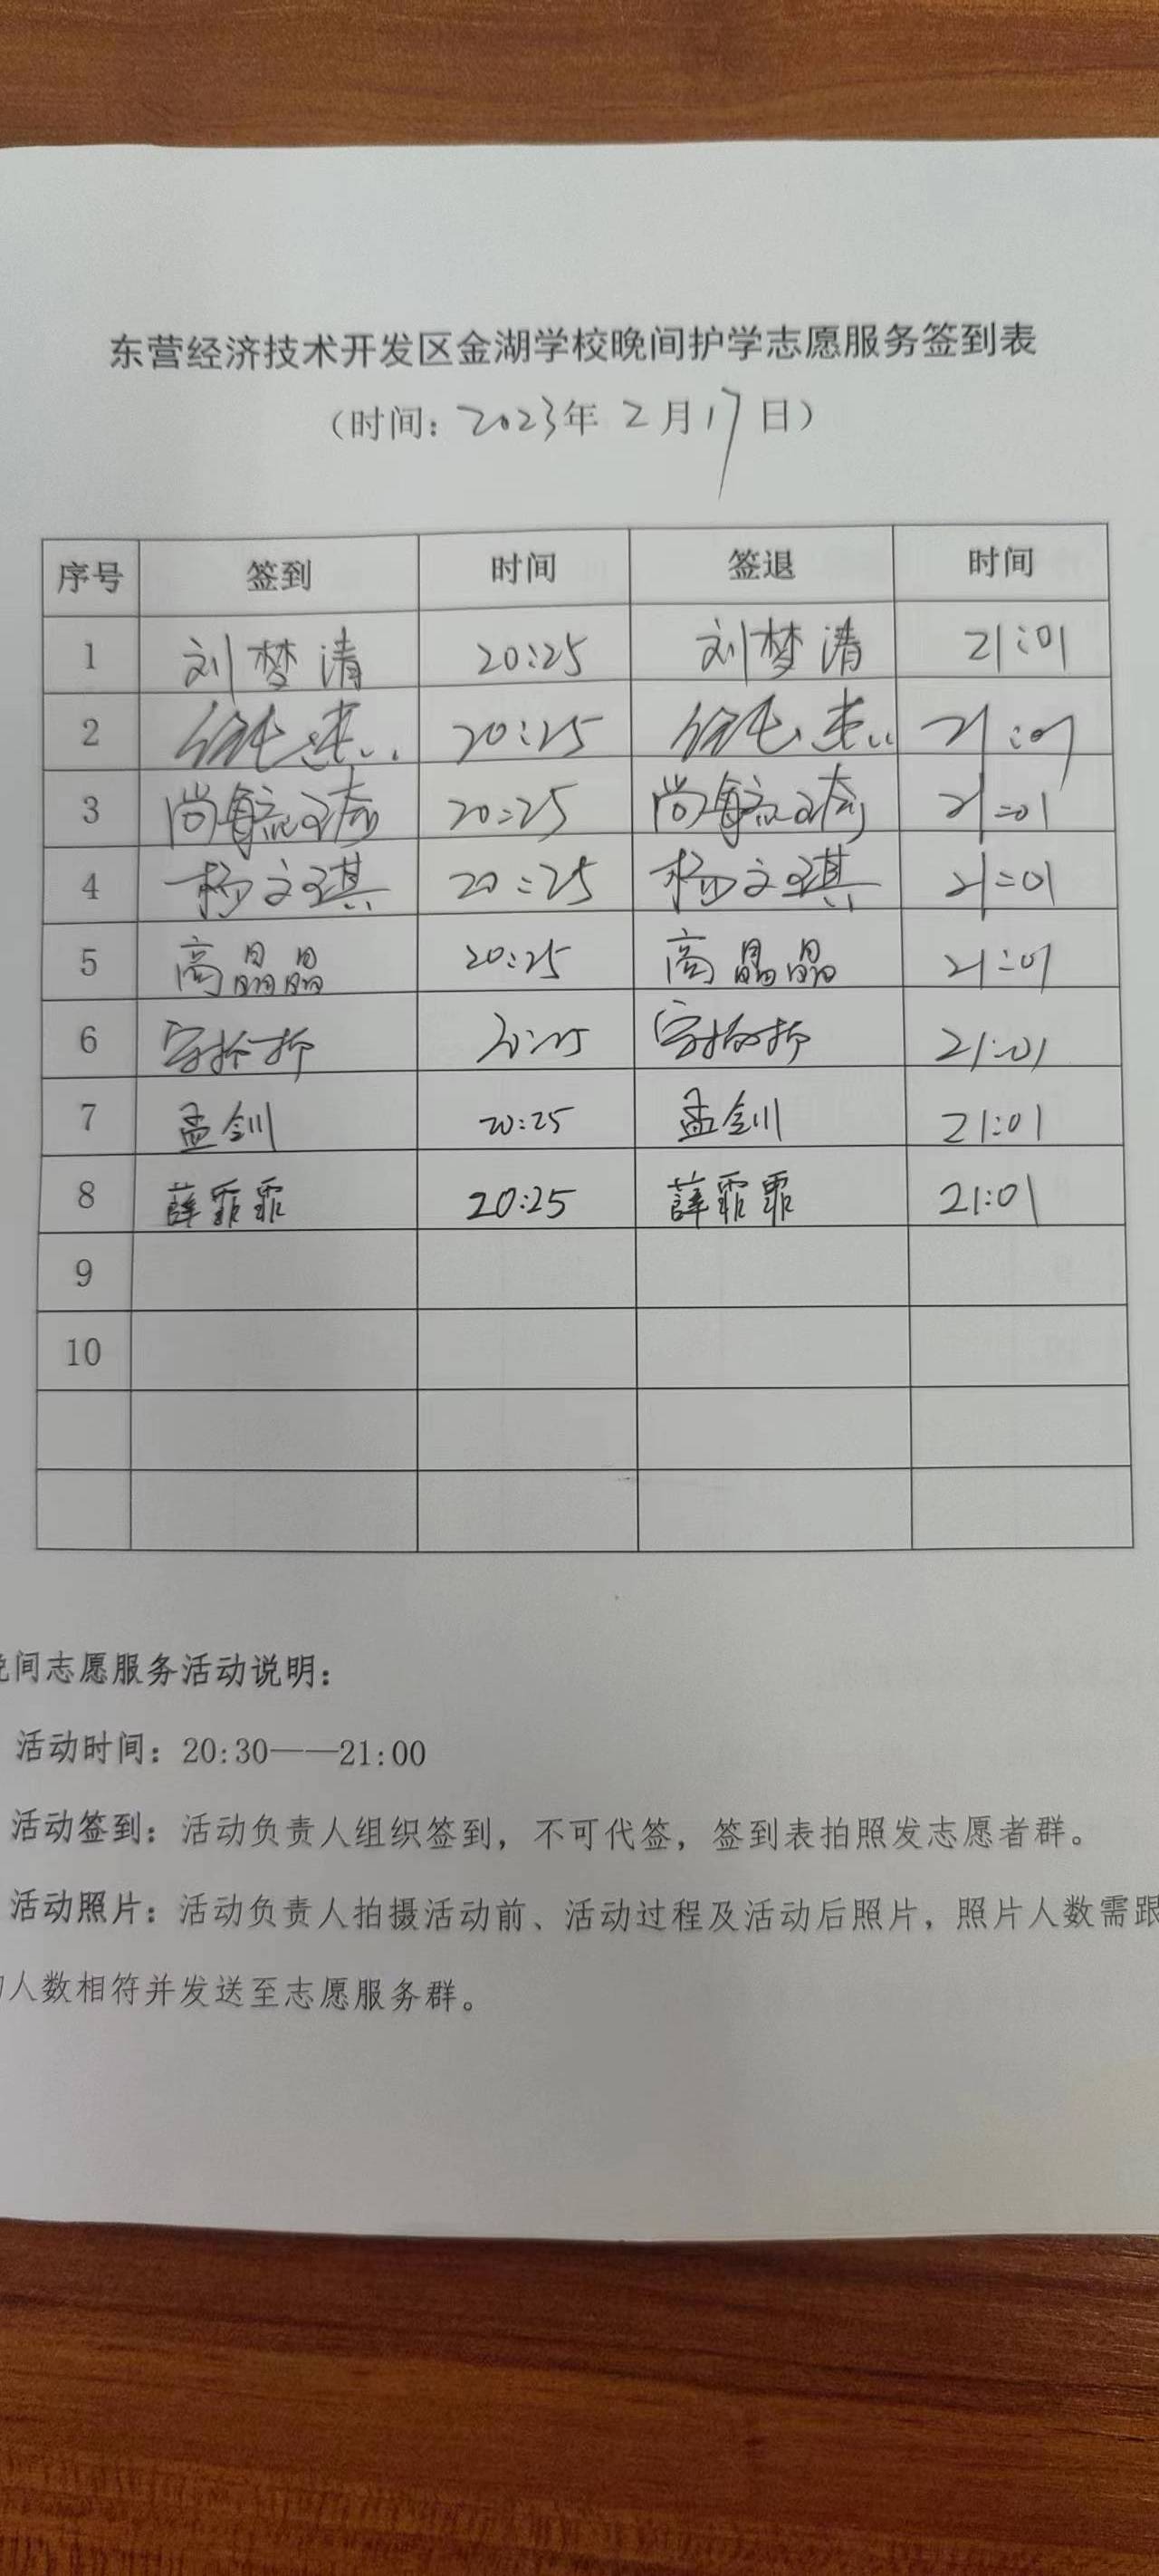 东营经济技术开发区金湖学校晚间护学志愿服务签到表
（时间：2023年 2月17日）
序号 签到 时间 签退 时间
1 刘梦清 20:25 刘梦清 21:01
2 20:25 21:01
3 尚毓琦 20:25 尚毓琦 21:01
4 杨文琪 20:25 杨文琪 21:01
5 高晶晶 20:25 高晶晶 21:01
6 20:25 21:01
7 孟钊 20:25 孟钊 21:01
8 薛霏霏 20:25 薛霏霏 21:01
9
10
间志愿服务活动说明：
活动时间：20:30——21:00
活动签到：活动负责人组织签到，不可代签，签到表拍照发志愿者群。
活动照片：活动负责人拍摄活动前、活动过程及活动后照片，照片人数需跟
人数相符并发送至志愿服务群。